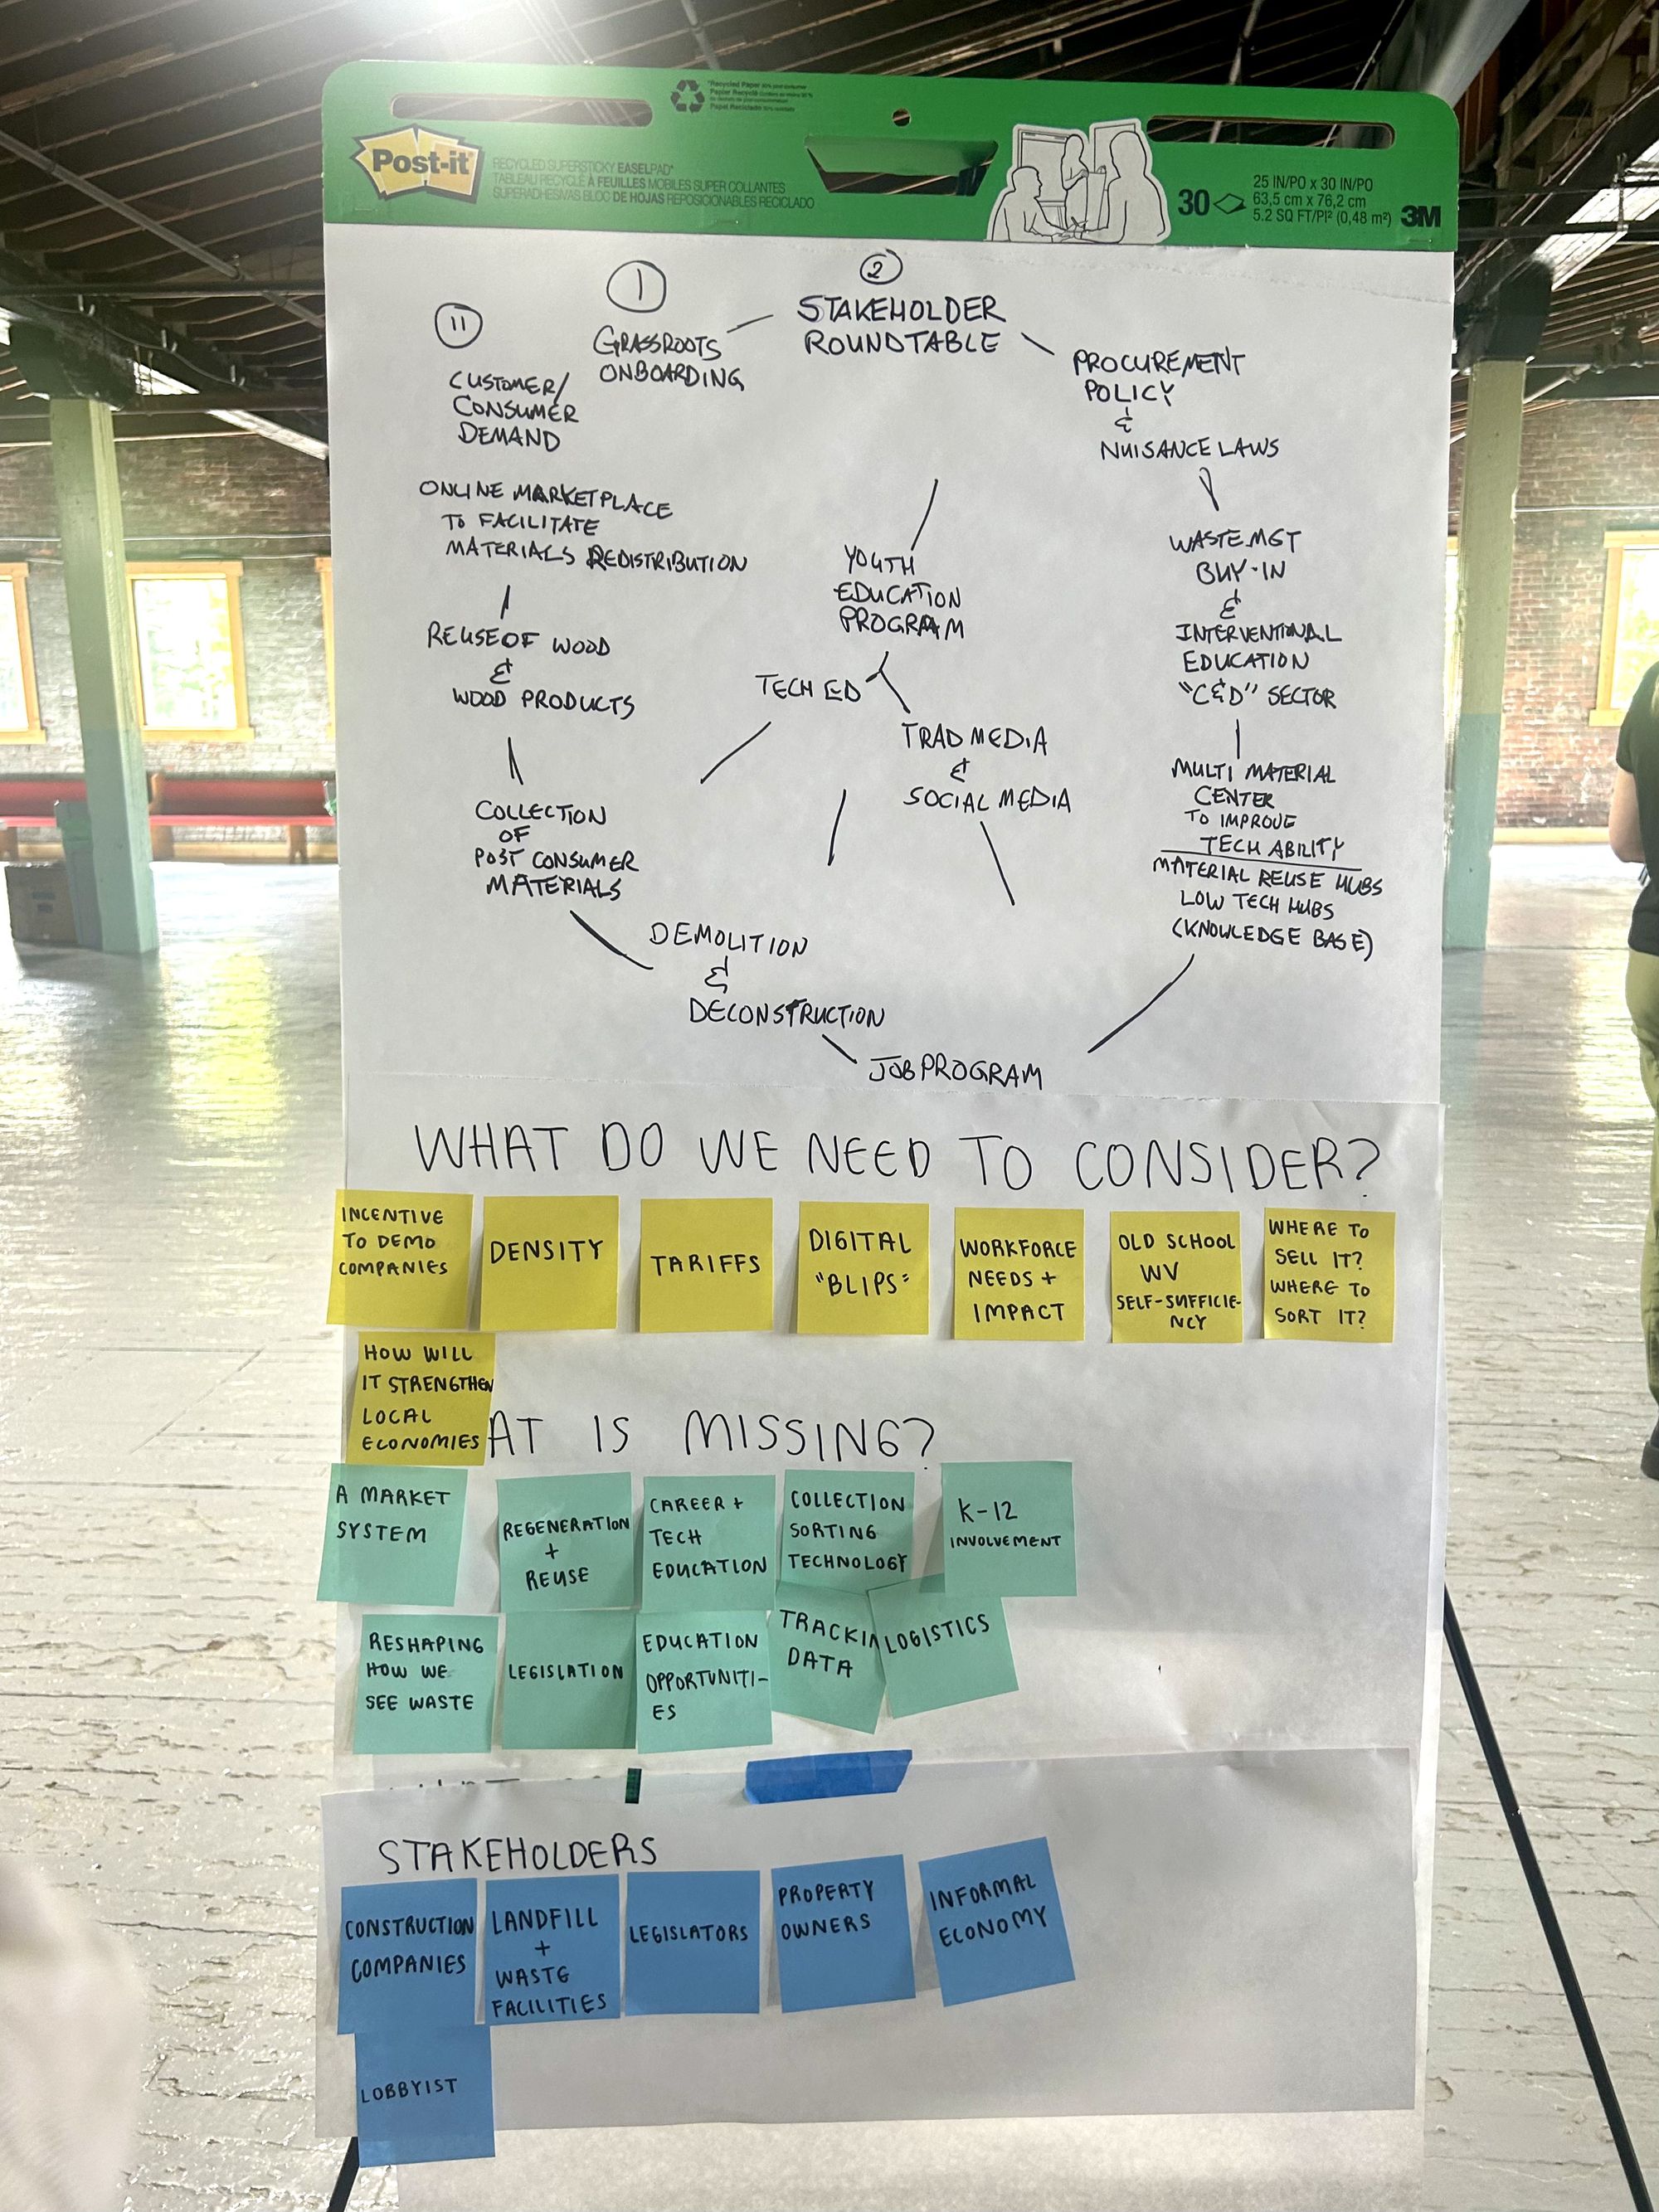 *Recycled Paper 30% post-consumer
Post-it
RECYCLED SUPERSTICKY EASELPAD*
TABLEAU RECYCLÉ À FEUILLES MOBILES SUPER COLLANTES
SUPERADHESIVAS BLOC DE HOJAS REPOSICIONABLES RECICLADO
30
25 IN/PO x 30 IN/PO
63,5 cm x 76,2 cm
5.2 SQ FT/PI² (0,48 m²)
3M
11
CUSTOMER/
CONSUMER
DEMAND
1
GRASSROOTS
ONBOARDING
2
STAKEHOLDER
ROUNDTABLE
PROCUREMENT
POLICY
&
NUISANCE LAWS
ONLINE MARKETPLACE
TO FACILITATE
MATERIALS REDISTRIBUTION
REUSE OF WOOD
&
WOOD PRODUCTS
COLLECTION
OF
POST CONSUMER
MATERIALS
YOUTH
EDUCATION
PROGRAM
TECH ED
TRAD MEDIA
&
SOCIAL MEDIA
WASTE MGT
BUY-IN
&
INTERVENTIONAL
EDUCATION
"C&D" SECTOR
MULTI MATERIAL
CENTER
TO IMPROVE
TECH ABILITY
MATERIAL REUSE HUBS
LOW TECH HUBS
(KNOWLEDGE BASE)
DEMOLITION
&
DECONSTRUCTION
JOB PROGRAM
WHAT DO WE NEED TO CONSIDER?
INCENTIVE
TO DEMO
COMPANIES
DENSITY
TARIFFS
DIGITAL
"BLIPS"
WORKFORCE
NEEDS +
IMPACT
OLD SCHOOL
WV
SELF-SUFFICIE-
NCY
WHERE TO
SELL IT?
WHERE TO
SORT IT?
HOW WILL
IT STRENGTHEN
LOCAL
ECONOMIES
AT IS MISSING?
A MARKET
SYSTEM
REGENERATION
+
REUSE
CAREER +
TECH
EDUCATION
COLLECTION
SORTING
TECHNOLOGY
K-12
INVOLVEMENT
RESHAPING
HOW WE
SEE WASTE
LEGISLATION
EDUCATION
OPPORTUNITI-
ES
TRACKIN
DATA
LOGISTICS
STAKEHOLDERS
CONSTRUCTION
COMPANIES
LANDFILL
+
WASTE
FACILITIES
LEGISLATORS
PROPERTY
OWNERS
INFORMAL
ECONOMY
LOBBYIST